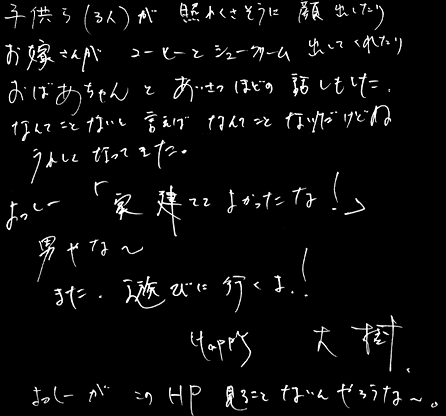 子供ら(3人)が 照れくさそうに 顔出したり
お嫁さんが コーヒーとシュークリーム 出してくれたり
おばあちゃんと あいさつほどの 話しもした。
なんてことないと 言えば なんてこと ないんだけどね
うれしく なってきた。
よっしー 「家建てて よかったな!」
男やな〜
また、遊びに行くよ!
Happy 大樹.
よっしーが このHP 見ること ないんやろうな〜。